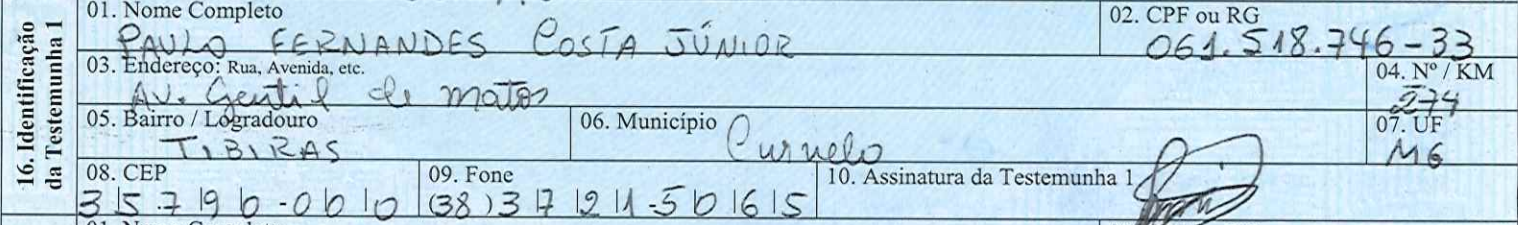 16. Identificação da Testemunha 1
01. Nome Completo
PAULO FERNANDES COSTA JÚNIOR
02. CPF ou RG
061.518.746-33
03. Endereço: Rua, Avenida, etc.
Av. Gentil de matos
04. Nº / KM
274
05. Bairro / Logradouro
TIBIRAS
06. Município
Curvelo
07. UF
MG
08. CEP
35.790-000
09. Fone
(38)3721-5065
10. Assinatura da Testemunha 1